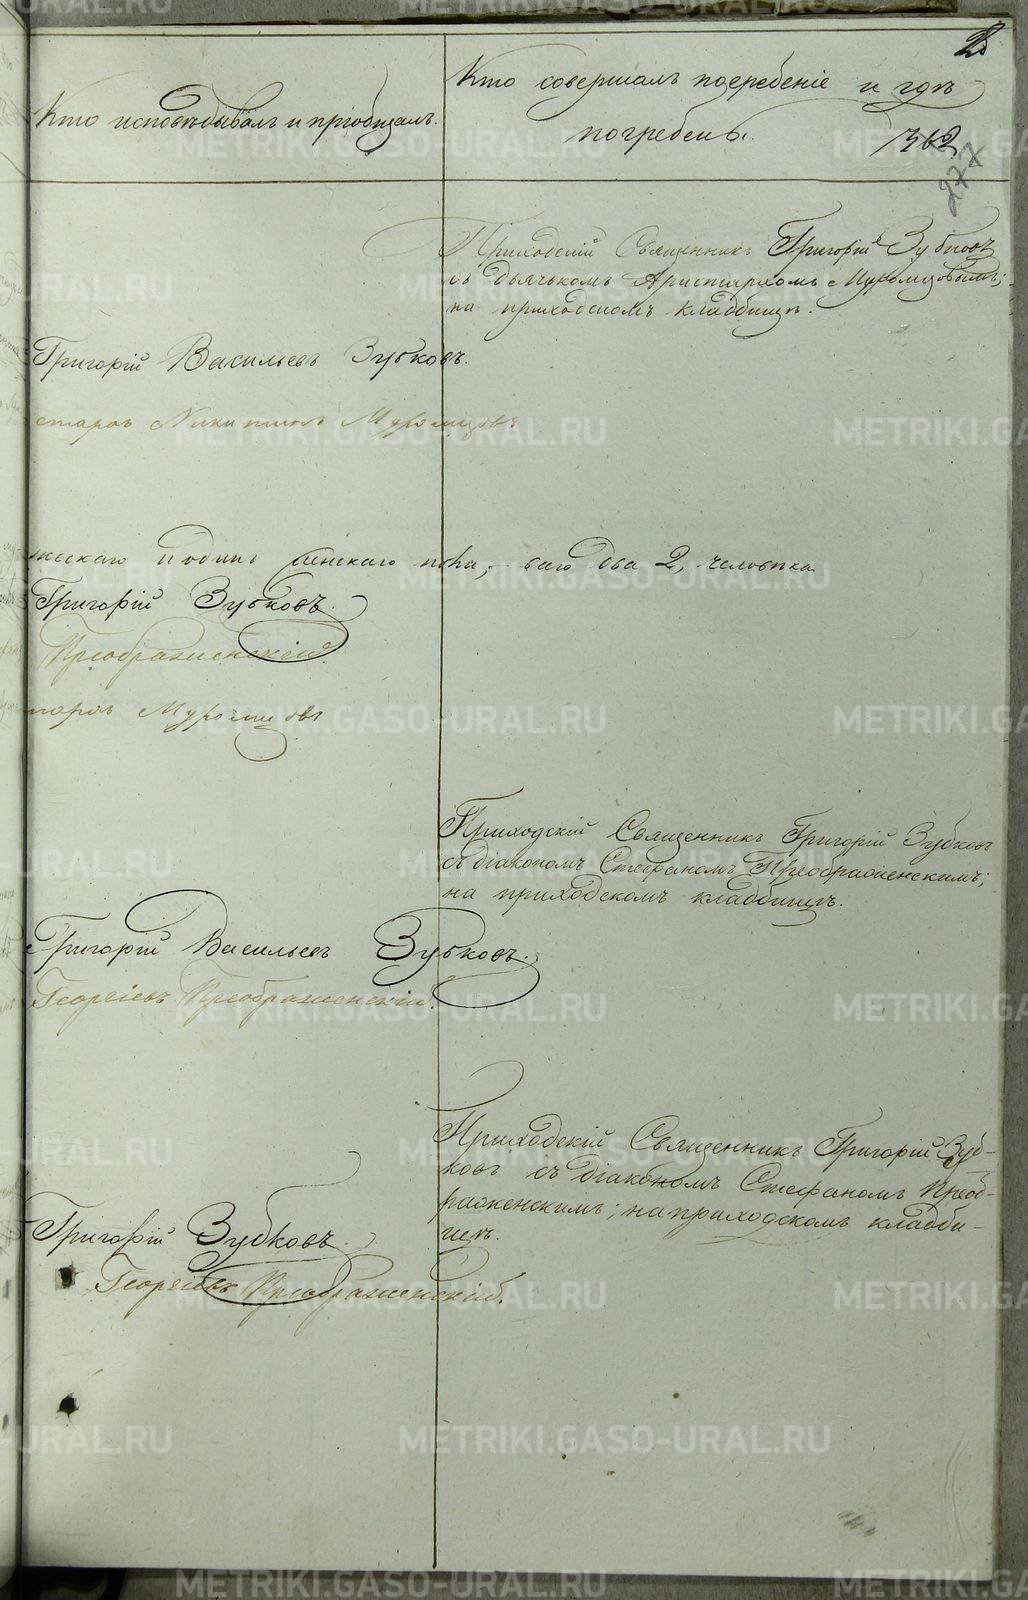 28
Кто исповѣдывалъ и пріобщалъ.
Кто совершалъ погребеніе и гдѣ
погребенъ.
362
277
Приходскій Священникъ Григорій Зубковъ
съ дьячькомъ Аристархомъ Муромцовымъ;
на приходскомъ кладбищѣ.
Григорій Васильевъ Зубковъ.
стархъ Никитинъ Муромцовъ
жескаго и одинъ женскаго пола, всего два 2, человѣка
Григорій Зубковъ.
Преображенскій.
тархъ Муромцовъ
Приходскій Священникъ Григорій Зубковъ
съ діакономъ Стефаномъ Преображенскимъ;
на приходскомъ кладбищѣ.
Григорій Васильевъ Зубковъ.
Георгіевъ Преображенскій.
Приходскій Священникъ Григорій Зуб-
ковъ съ діакономъ Стефаномъ Преоб-
раженскимъ; на приходскомъ кладби-
щѣ.
Григорій Зубковъ.
Георгіевъ Преображенскій.
METRIKI.GASO-URAL.RU